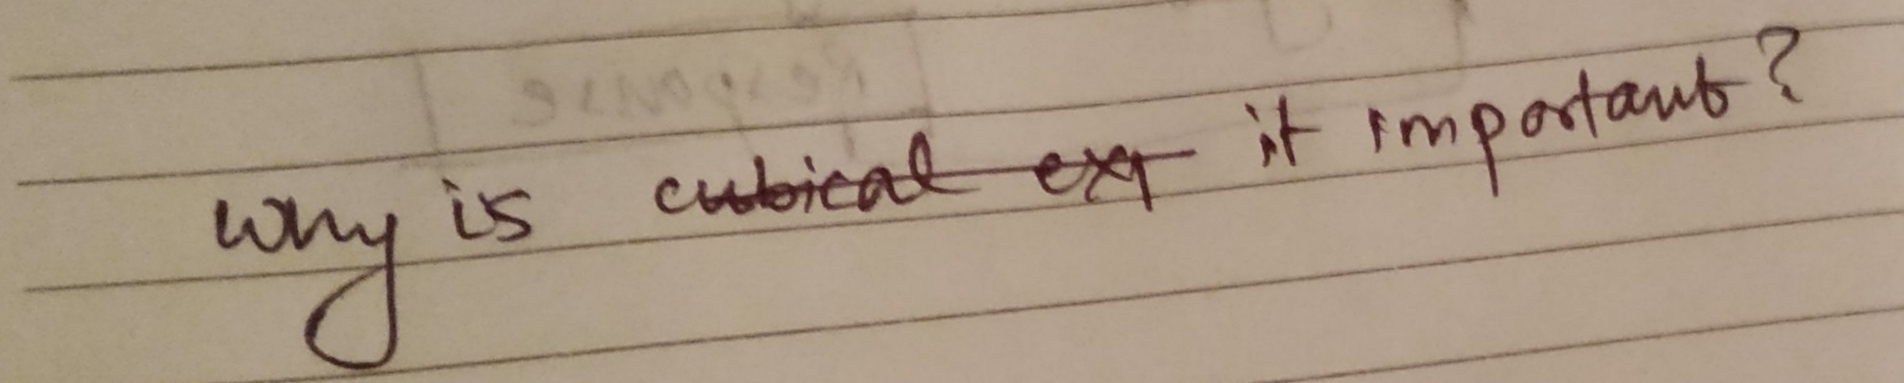 why is cubical exp it important?